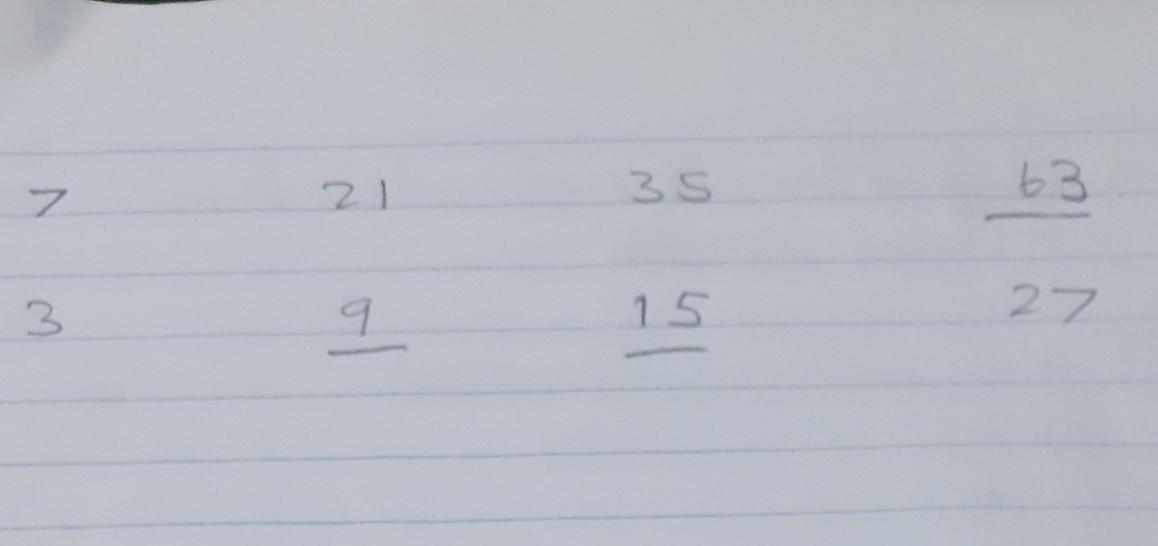 7 21 35 63
3 9 15 27